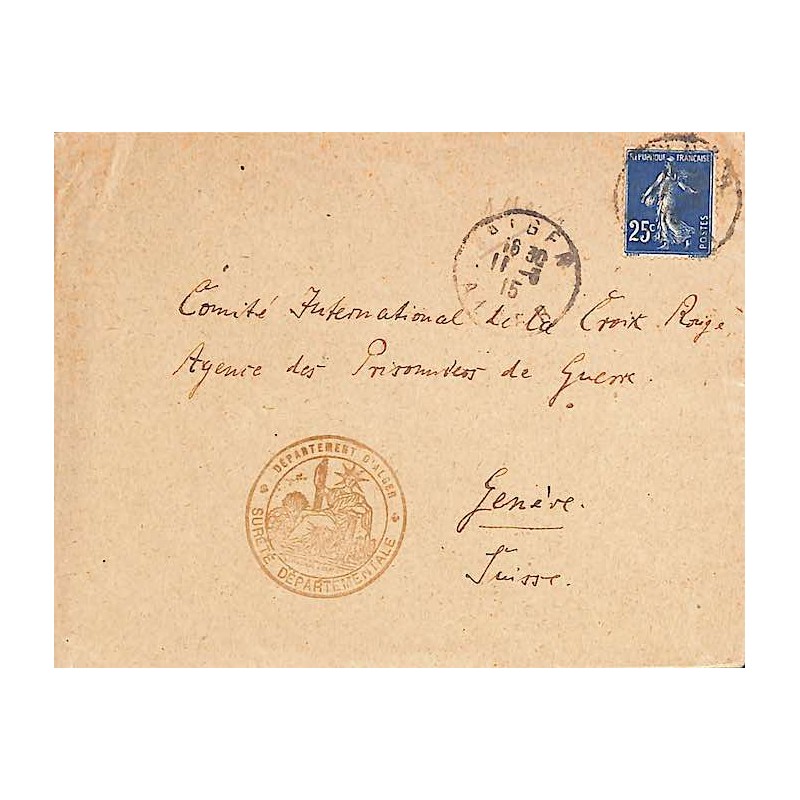 RÉPUBLIQUE FRANÇAISE
25c
POSTES
16 30
11
15
Comité International de la Croix Rouge
Agence des Prisonniers de Guerre.
DÉPARTEMENT D'ALGER
SURETÉ DÉPARTEMENTALE
Genève.
Suisse.